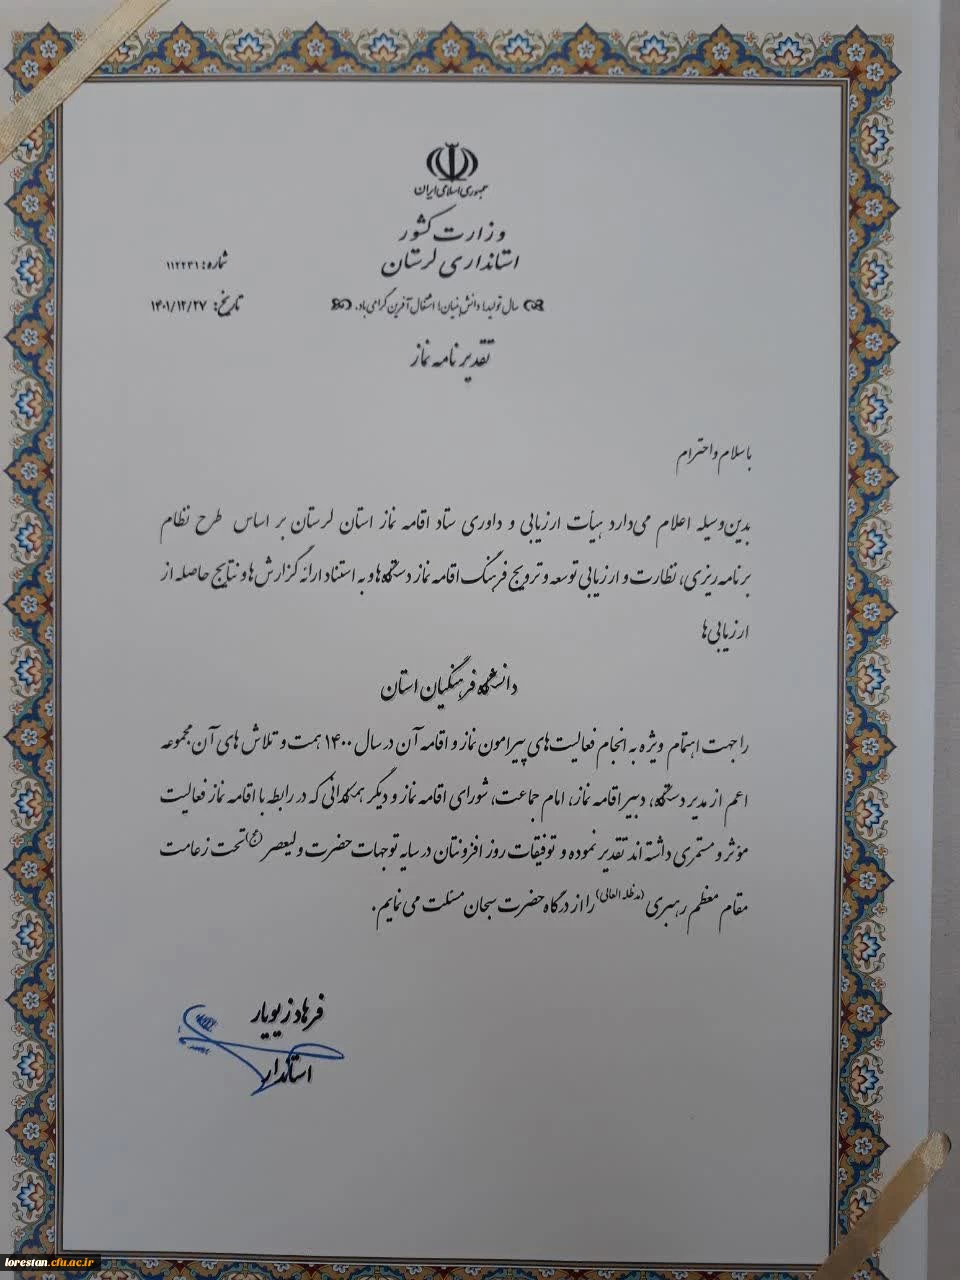 جمهوری اسلامی ایران
وزارت کشور
استانداری لرستان
شماره: ۱۱۲۲۳۱
سال تولید؛ دانش بنیان؛ اشتغال آفرین گرامی باد.
تاریخ: ۱۴۰۱/۱۲/۲۷
تقدیر نامه نماز
با سلام و احترام
بدین‌وسیله اعلام می‌دارد هیأت ارزیابی و داوری ستاد اقامه نماز استان لرستان بر اساس طرح نظام
برنامه ریزی، نظارت و ارزیابی توسعه و ترویج فرهنگ اقامه نماز دستگاه‌ها و به استناد ارائه گزارش‌ها و نتایج حاصله از
ارزیابی‌ها
دانشگاه فرهنگیان استان
را جهت اهتمام ویژه به انجام فعالیت‌های پیرامون نماز و اقامه آن در سال ۱۴۰۰ همت و تلاش های آن مجموعه
اعم از مدیر دستگاه، دبیر اقامه نماز، امام جماعت، شورای اقامه نماز و دیگر همکارانی که در رابطه با اقامه نماز فعالیت
مؤثر و مستمری داشته اند تقدیر نموده و توفیقات روز افزونتان در سایه توجهات حضرت ولیعصر (عج) تحت زعامت
مقام معظم رهبری (مدظله العالی) را از درگاه حضرت سبحان مسئلت می نمایم.
فرهاد زیویار
استاندار
lorestan.cfu.ac.ir